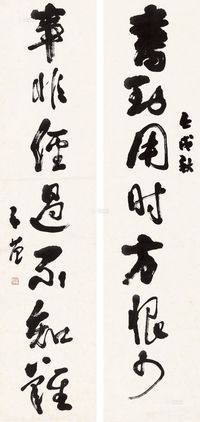 書到用时方恨少
壬戌秋
事非經過不知難